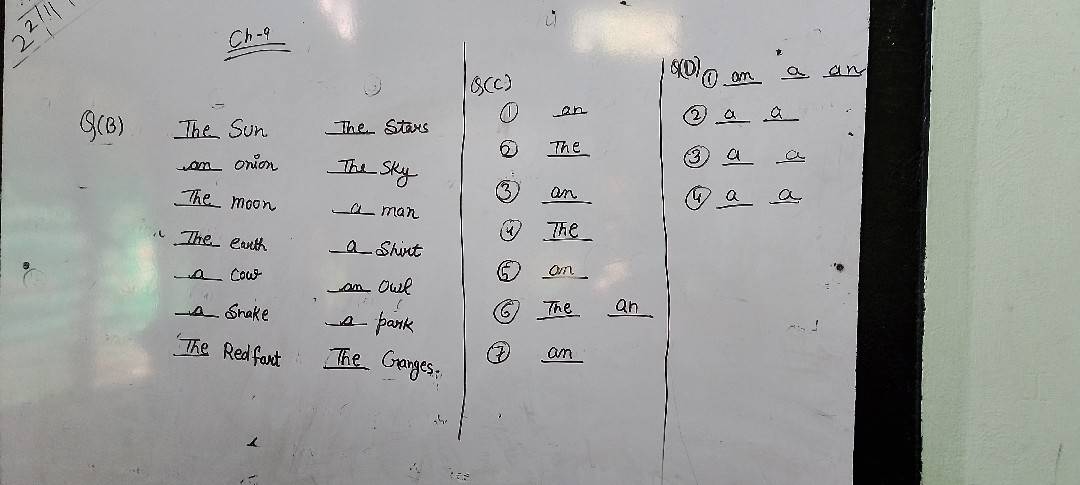 22/11
Ch-9
Q(B)
The Sun The Stars
an onion The Sky
The moon a man
The earth a Shirt
a Cow an Owl
a Snake a park
The Red fort The Ganges.
Q(C)
① an
② The
③ an
④ The
⑤ an
⑥ The an
⑦ an
Q(D) ① an a an
② a a
③ a a
④ a a